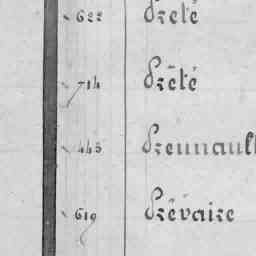 622 Prété
714 Prêté
445 Preunault
619 Prévaire